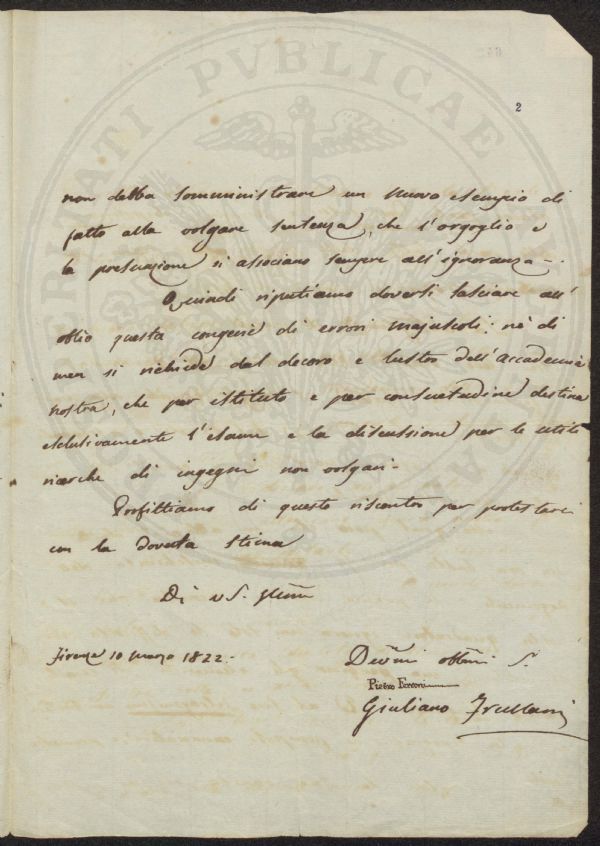 PROSPERITATI PVBLICAE
2
non debba somministrare un nuovo esempio di
fatto alla volgare sentenza, che l'orgoglio e
la presunzione si associano sempre all'ignoranza.
Quindi riputiamo doversi lasciare all'
oblio questa congerie di errori majuscoli; nè di
men si richiede dal decoro e lustro dell'Accademia
nostra, che per istituto e per consuetudine destina
esclusivamente l'esame e la discussione per le utili
ricerche di ingegni non volgari.
Profittiamo di questo riscontro per protestarci
con la dovuta stima
Di V S. Illma
Firenze 10 Marzo 1822.
Devmi obbmi S.
Pietro Ferroni
Giuliano Frullani